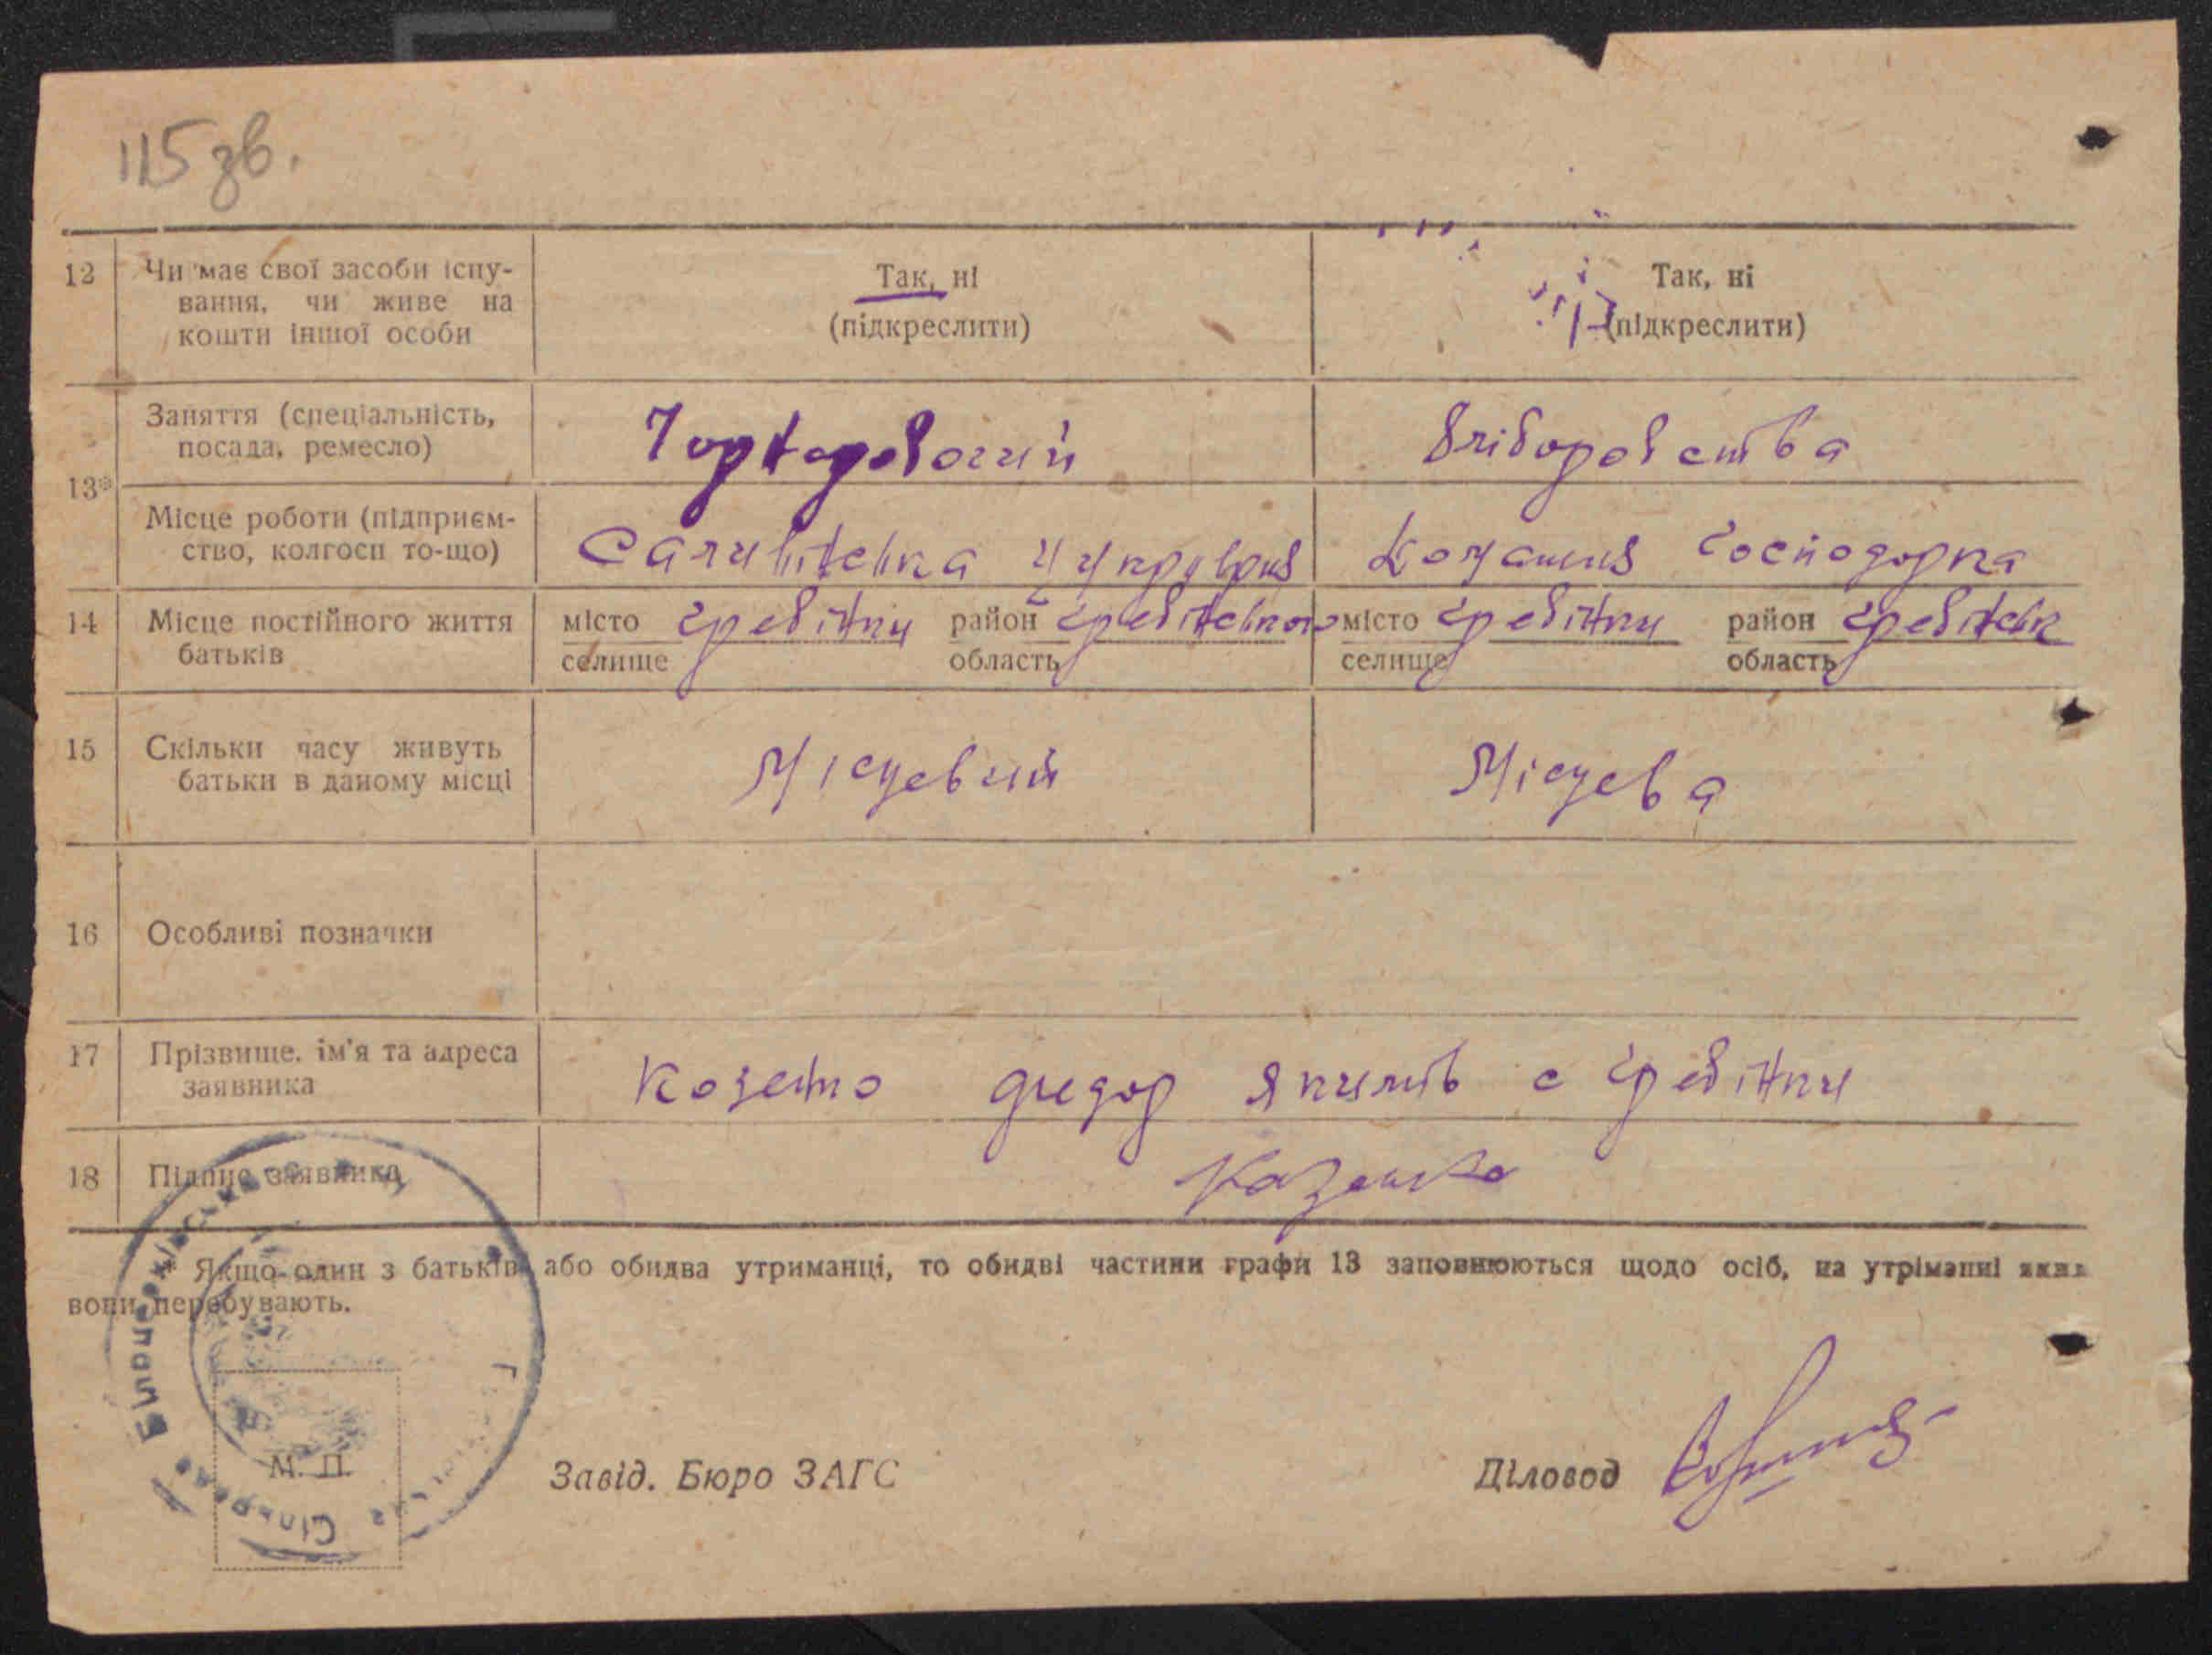 115 зв.
12 Чи має свої засоби існу-
вання, чи живе на
кошти іншої особи
Так, ні
(підкреслити)
Так, ні
(підкреслити)
13*
Заняття (спеціальність,
посада, ремесло)
Чорторобочий
Хліборобства
Місце роботи (підприєм-
ство, колгосп то-що)
Саливінтенка
Домашня Господорка
14 Місце постійного життя
батьків
місто Гребінки район
селище область
місто Гребінки район Гребінк
селище область
15 Скільки часу живуть
батьки в даному місці
Місцевий
Місцева
16 Особливі позначки
17 Прізвище, ім'я та адреса
заявника
Козенко Федор Якимів с Гребінки
18 Підпис заявника
Козенко
* Якщо один з батьків або обидва утриманці, то обидві частини графи 13 заповнюються щодо осіб, на утріманні яких
вони перебувають.
М. П.
Завід. Бюро ЗАГС
Діловод
Білоцерківського
Сільрада